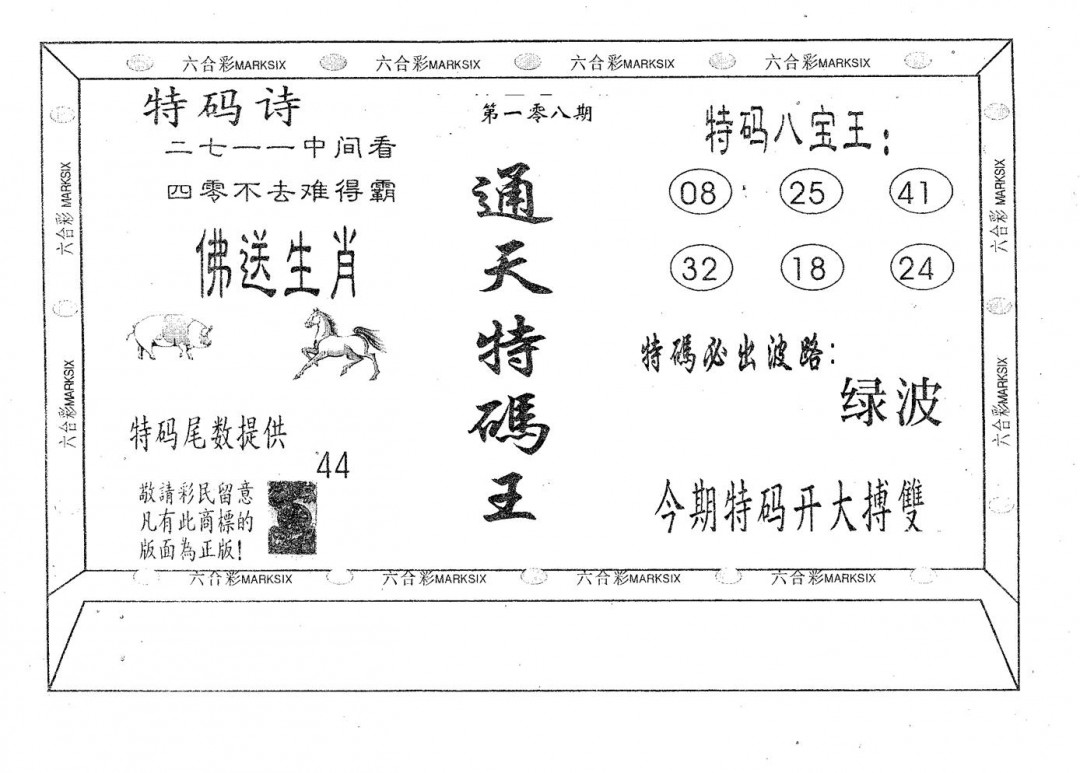 六合彩MARKSIX 六合彩MARKSIX 六合彩MARKSIX 六合彩MARKSIX
特码诗
二七一一中间看
四零不去难得霸
佛送生肖
特码尾数提供
44
敬請彩民留意
凡有此商標的
版面為正版!
第一零八期
通天特碼王
特码八宝王:
08 25 41
32 18 24
特碼必出波路:
绿波
今期特码开大搏雙
六合彩 MARKSIX
六合彩MARKSIX
六合彩 MARKSIX
六合彩MARKSIX
六合彩MARKSIX 六合彩MARKSIX 六合彩MARKSIX 六合彩MARKSIX